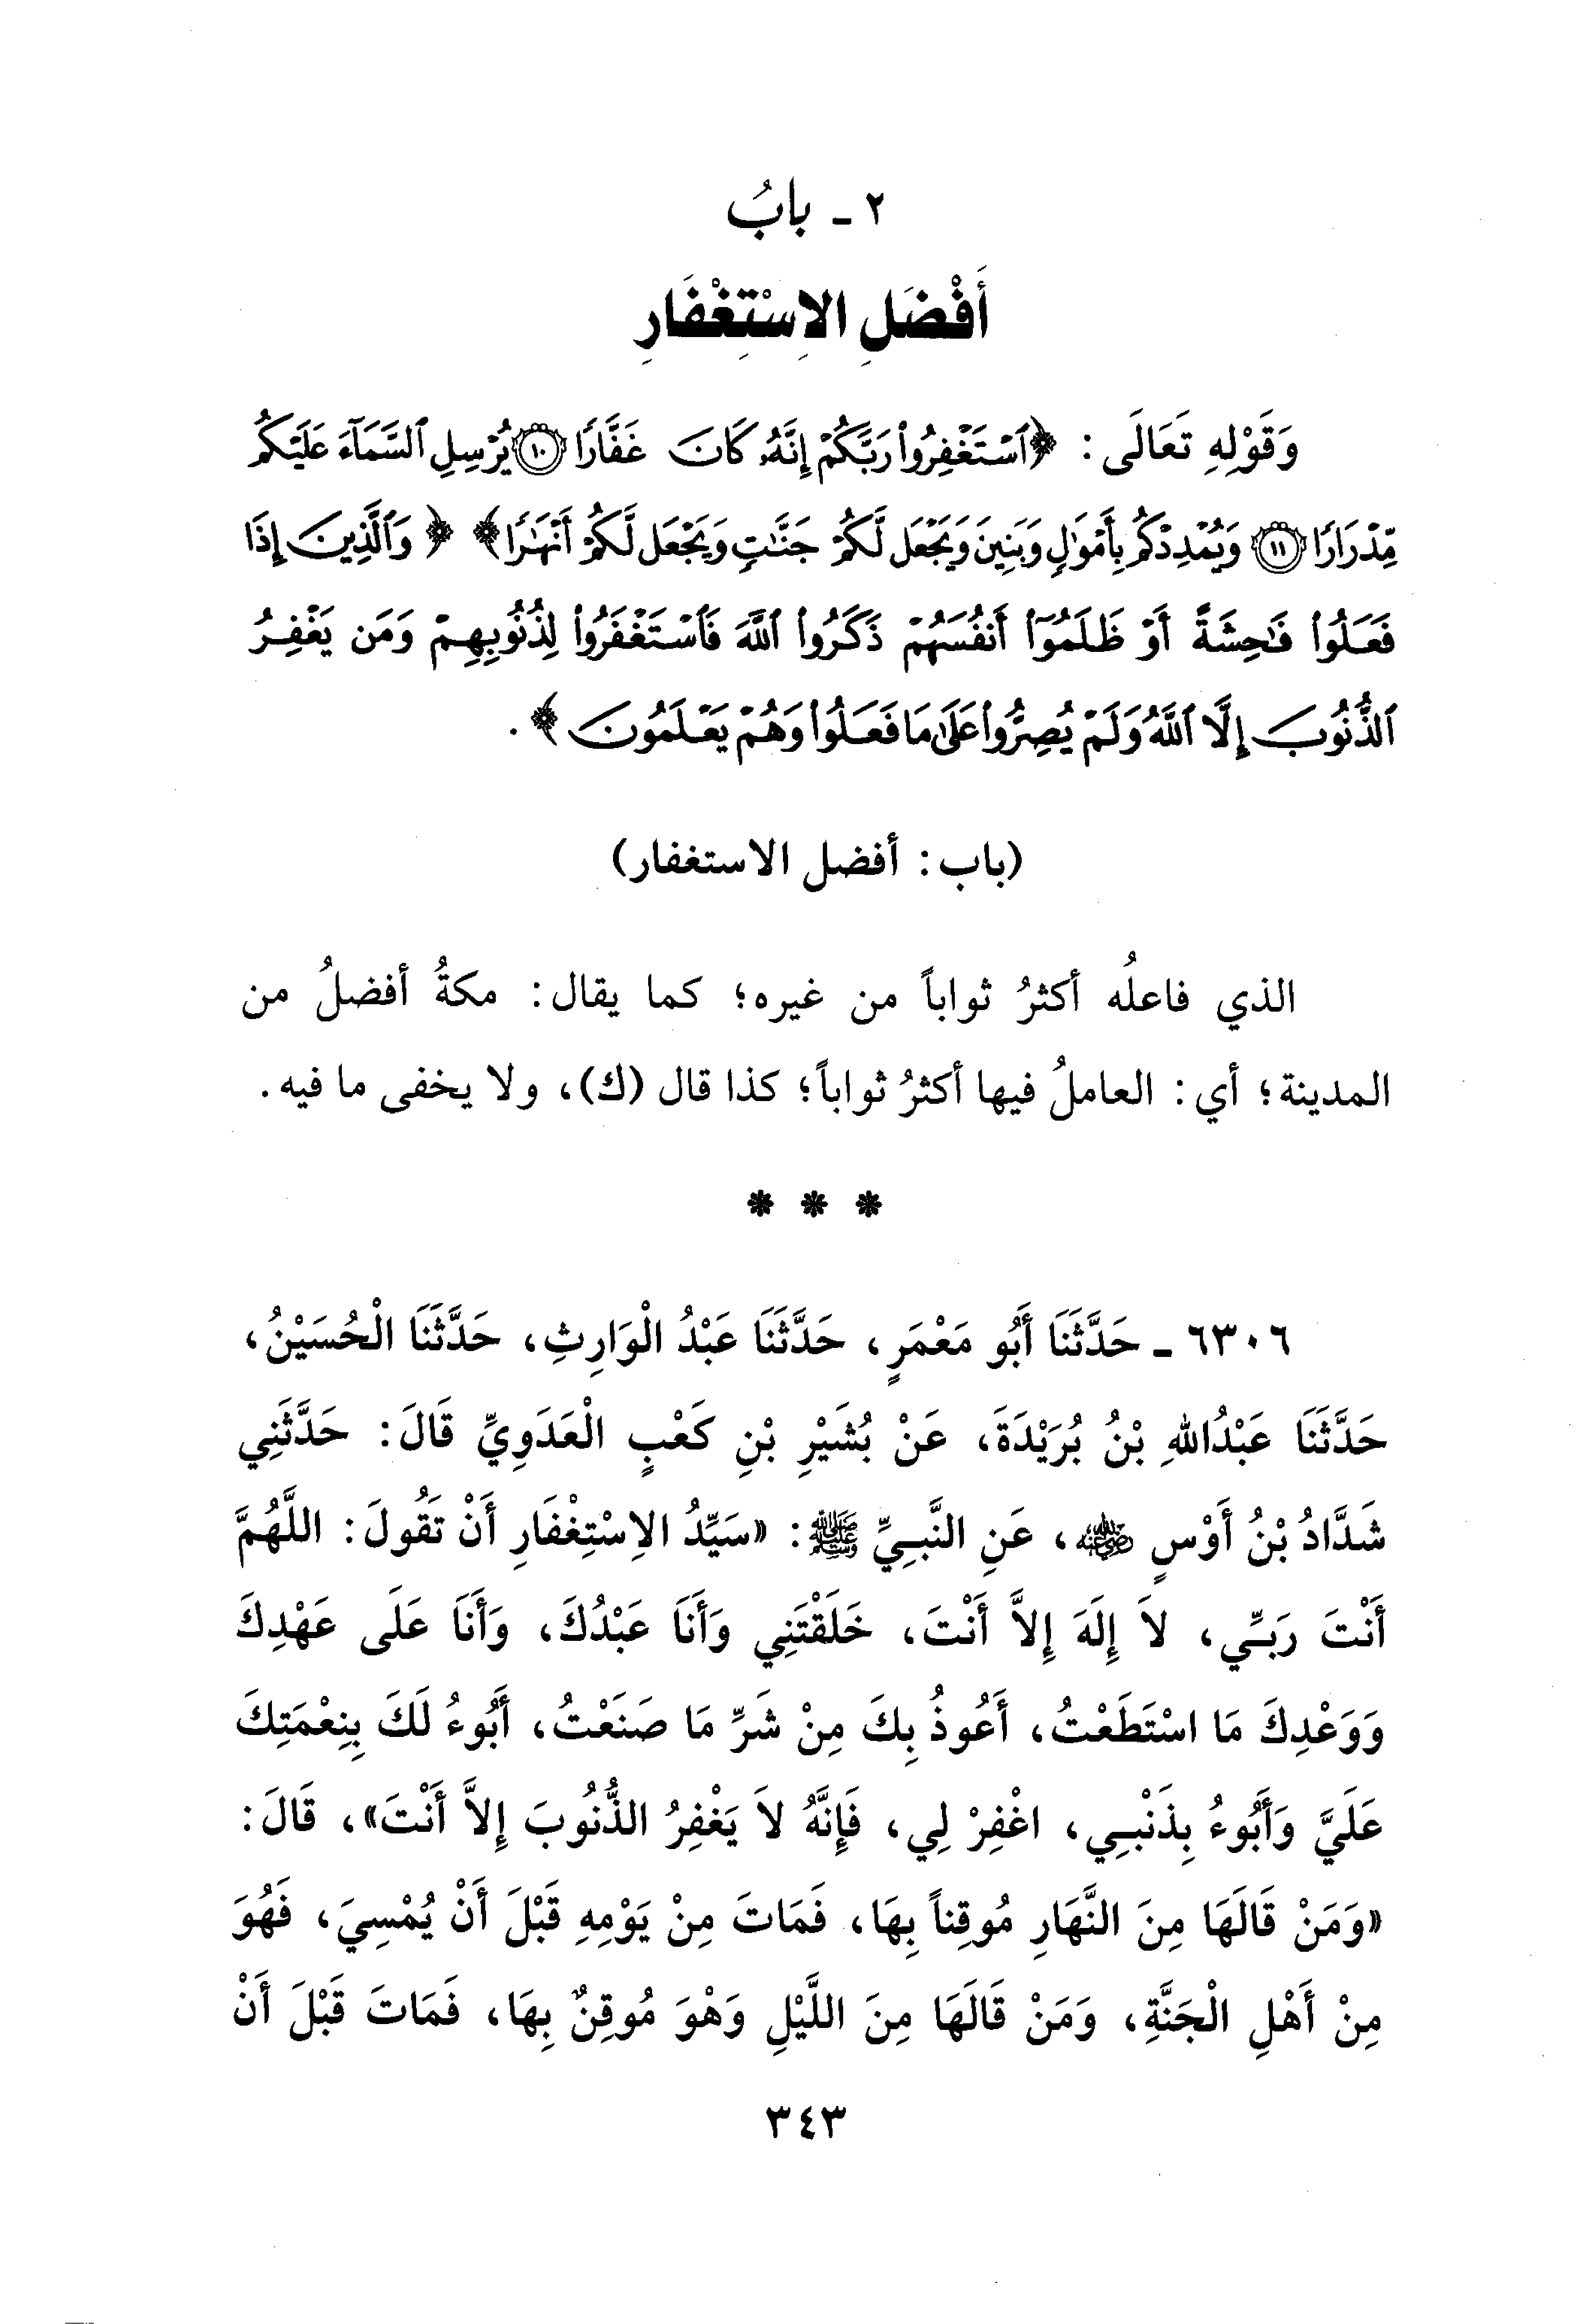 ٢ ـ بابُ
أَفْضَلِ الاِسْتِغْفَارِ
وَقَوْلِهِ تَعَالَى: ﴿ٱسْتَغْفِرُوا۟ رَبَّكُمْ إِنَّهُۥ كَانَ غَفَّارًا ۝١٠ يُرْسِلِ ٱلسَّمَآءَ عَلَيْكُم
مِّدْرَارًا ۝١١ وَيُمْدِدْكُم بِأَمْوَٰلٍ وَبَنِينَ وَيَجْعَل لَّكُمْ جَنَّٰتٍ وَيَجْعَل لَّكُمْ أَنْهَٰرًا﴾ ﴿وَٱلَّذِينَ إِذَا
فَعَلُوا۟ فَٰحِشَةً أَوْ ظَلَمُوٓا۟ أَنفُسَهُمْ ذَكَرُوا۟ ٱللَّهَ فَٱسْتَغْفَرُوا۟ لِذُنُوبِهِمْ وَمَن يَغْفِرُ
ٱلذُّنُوبَ إِلَّا ٱللَّهُ وَلَمْ يُصِرُّوا۟ عَلَىٰ مَا فَعَلُوا۟ وَهُمْ يَعْلَمُونَ﴾.
(باب: أفضل الاستغفار)
الذي فاعلُه أكثرُ ثواباً من غيره؛ كما يقال: مكةُ أفضلُ من
المدينة؛ أي: العاملُ فيها أكثرُ ثواباً؛ كذا قال (ك)، ولا يخفى ما فيه.
* * *
٦٣٠٦ ـ حَدَّثَنَا أَبُو مَعْمَرٍ، حَدَّثَنَا عَبْدُ الْوَارِثِ، حَدَّثَنَا الْحُسَيْنُ،
حَدَّثَنَا عَبْدُاللهِ بْنُ بُرَيْدَةَ، عَنْ بُشَيْرِ بْنِ كَعْبٍ الْعَدَوِيِّ قَالَ: حَدَّثَنِي
شَدَّادُ بْنُ أَوْسٍ رضي الله عنه، عَنِ النَّبِيِّ ﷺ: «سَيِّدُ الاِسْتِغْفَارِ أَنْ تَقُولَ: اللَّهُمَّ
أَنْتَ رَبِّي، لاَ إِلَهَ إِلاَّ أَنْتَ، خَلَقْتَنِي وَأَنَا عَبْدُكَ، وَأَنَا عَلَى عَهْدِكَ
وَوَعْدِكَ مَا اسْتَطَعْتُ، أَعُوذُ بِكَ مِنْ شَرِّ مَا صَنَعْتُ، أَبُوءُ لَكَ بِنِعْمَتِكَ
عَلَيَّ وَأَبُوءُ بِذَنْبِي، اغْفِرْ لِي، فَإِنَّهُ لاَ يَغْفِرُ الذُّنُوبَ إِلاَّ أَنْتَ»، قَالَ:
«وَمَنْ قَالَهَا مِنَ النَّهَارِ مُوقِناً بِهَا، فَمَاتَ مِنْ يَوْمِهِ قَبْلَ أَنْ يُمْسِيَ، فَهُوَ
مِنْ أَهْلِ الْجَنَّةِ، وَمَنْ قَالَهَا مِنَ اللَّيْلِ وَهْوَ مُوقِنٌ بِهَا، فَمَاتَ قَبْلَ أَنْ
٣٤٣